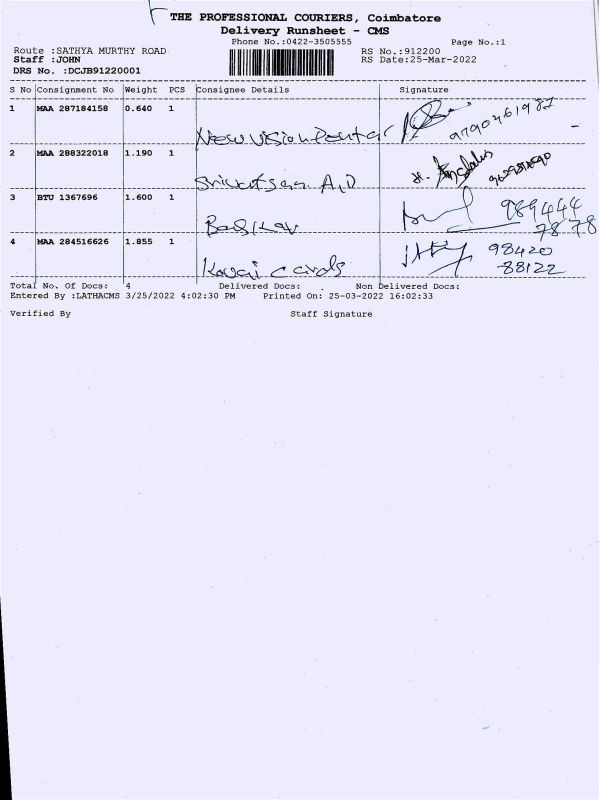 THE PROFESSIONAL COURIERS, Coimbatore
Delivery Runsheet - CMS
Phone No.:0422-3505555 Page No.:1
Route :SATHYA MURTHY ROAD RS No.:912200
Staff :JOHN RS Date:25-Mar-2022
DRS No. :DCJB91220001
S No Consignment No Weight PCS Consignee Details Signature
1 MAA 287184158 0.640 1
New Vision 9790461982
2 MAA 288322018 1.190 1
Srivatsan A.D
3 BTU 1367696 1.600 1
989444
7878
4 MAA 284516626 1.855 1
98420
Kovai cards 88122
Total No. Of Docs: 4 Delivered Docs: Non Delivered Docs:
Entered By :LATHACMS 3/25/2022 4:02:30 PM Printed On: 25-03-2022 16:02:33
Verified By Staff Signature